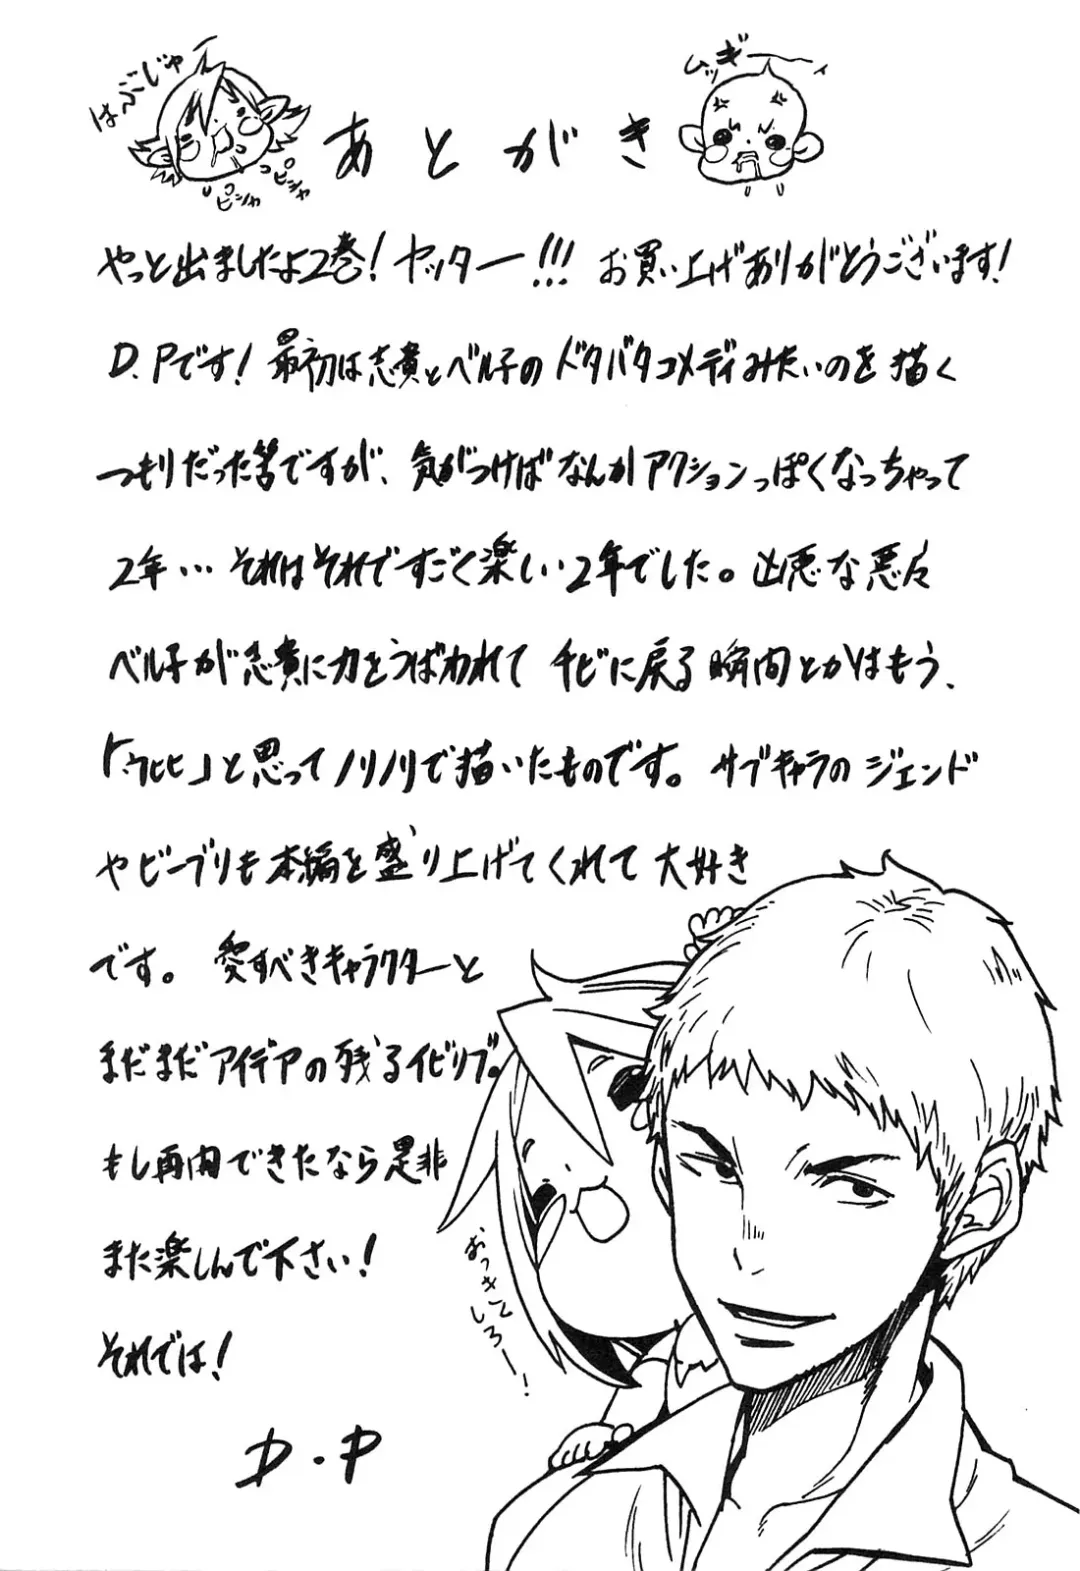 はぶじゃー
ムッギーィ
あとがき
ピシャ
ピシャ
やっと出ましたよ2巻！ヤッター!!! お買い上げありがとうございます！
D.Pです！最初は志貴とベル子のドタバタコメディみたいのを描く
つもりだった筈ですが、気がつけばなんかアクションっぽくなっちゃって
2年…それはそれですごく楽しい2年でした。凶悪な悪々
ベル子が志貴に力をうばわれてチビに戻る瞬間とかはもう、
「ウヒヒ」と思ってノリノリで描いたものです。サブキャラのジェンド
やビーブリも本編を盛り上げてくれて大好き
です。愛すべきキャラクターと
まだまだアイデアの残るイビリブ。
もし再開できたなら是非
また楽しんで下さい！
それでは！
おっきくしろー！
D.P